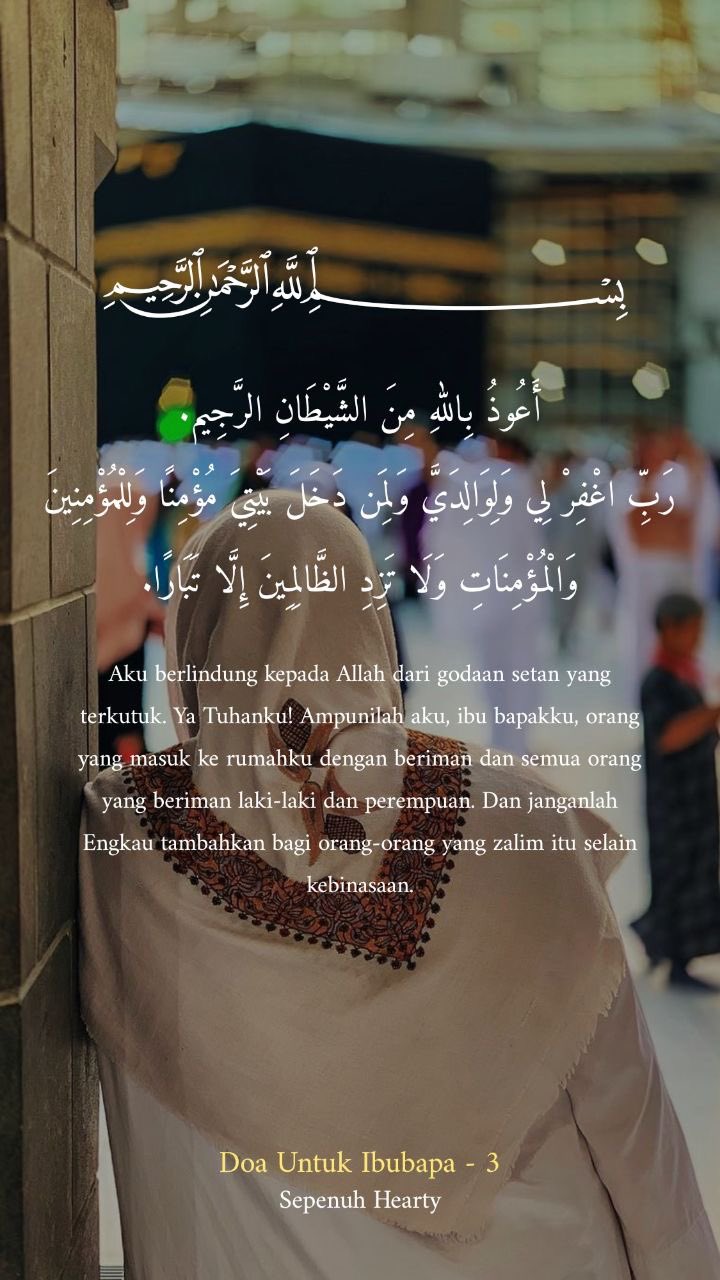 بِسْمِ ٱللَّهِ ٱلرَّحْمَٰنِ ٱلرَّحِيمِ
أَعُوذُ بِاللهِ مِنَ الشَّيْطَانِ الرَّجِيمِ.
رَبِّ اغْفِرْ لِي وَلِوَالِدَيَّ وَلِمَن دَخَلَ بَيْتِيَ مُؤْمِنًا وَلِلْمُؤْمِنِينَ
وَالْمُؤْمِنَاتِ وَلَا تَزِدِ الظَّالِمِينَ إِلَّا تَبَارًا.
Aku berlindung kepada Allah dari godaan setan yang
terkutuk. Ya Tuhanku! Ampunilah aku, ibu bapakku, orang
yang masuk ke rumahku dengan beriman dan semua orang
yang beriman laki-laki dan perempuan. Dan janganlah
Engkau tambahkan bagi orang-orang yang zalim itu selain
kebinasaan.
Doa Untuk Ibubapa - 3
Sepenuh Hearty